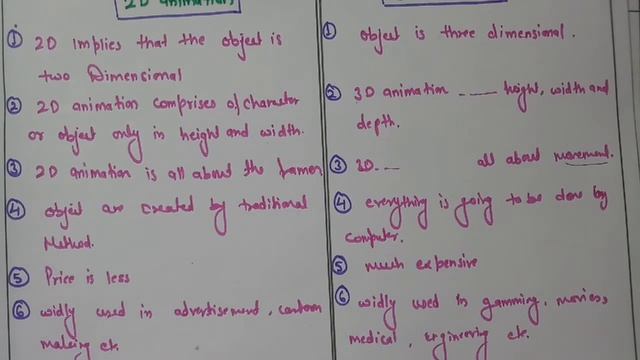 2D animation
① 2D Implies that the object is
two Dimensional
② 2D animation comprises of character
or object only in height and width.
③ 2D animation is all about the framen
④ object are created by traditional
Method.
⑤ Price is less
⑥ widly used in advertisement, cartoon
making etc.
① object is three dimensional.
② 3D animation _ ___ height, width and
depth.
③ 3D _ __ all about movement.
④ everything is going to be done by
Computer.
⑤ much expensive
⑥ widly used in gamming, moviess
medical, engineering etc.